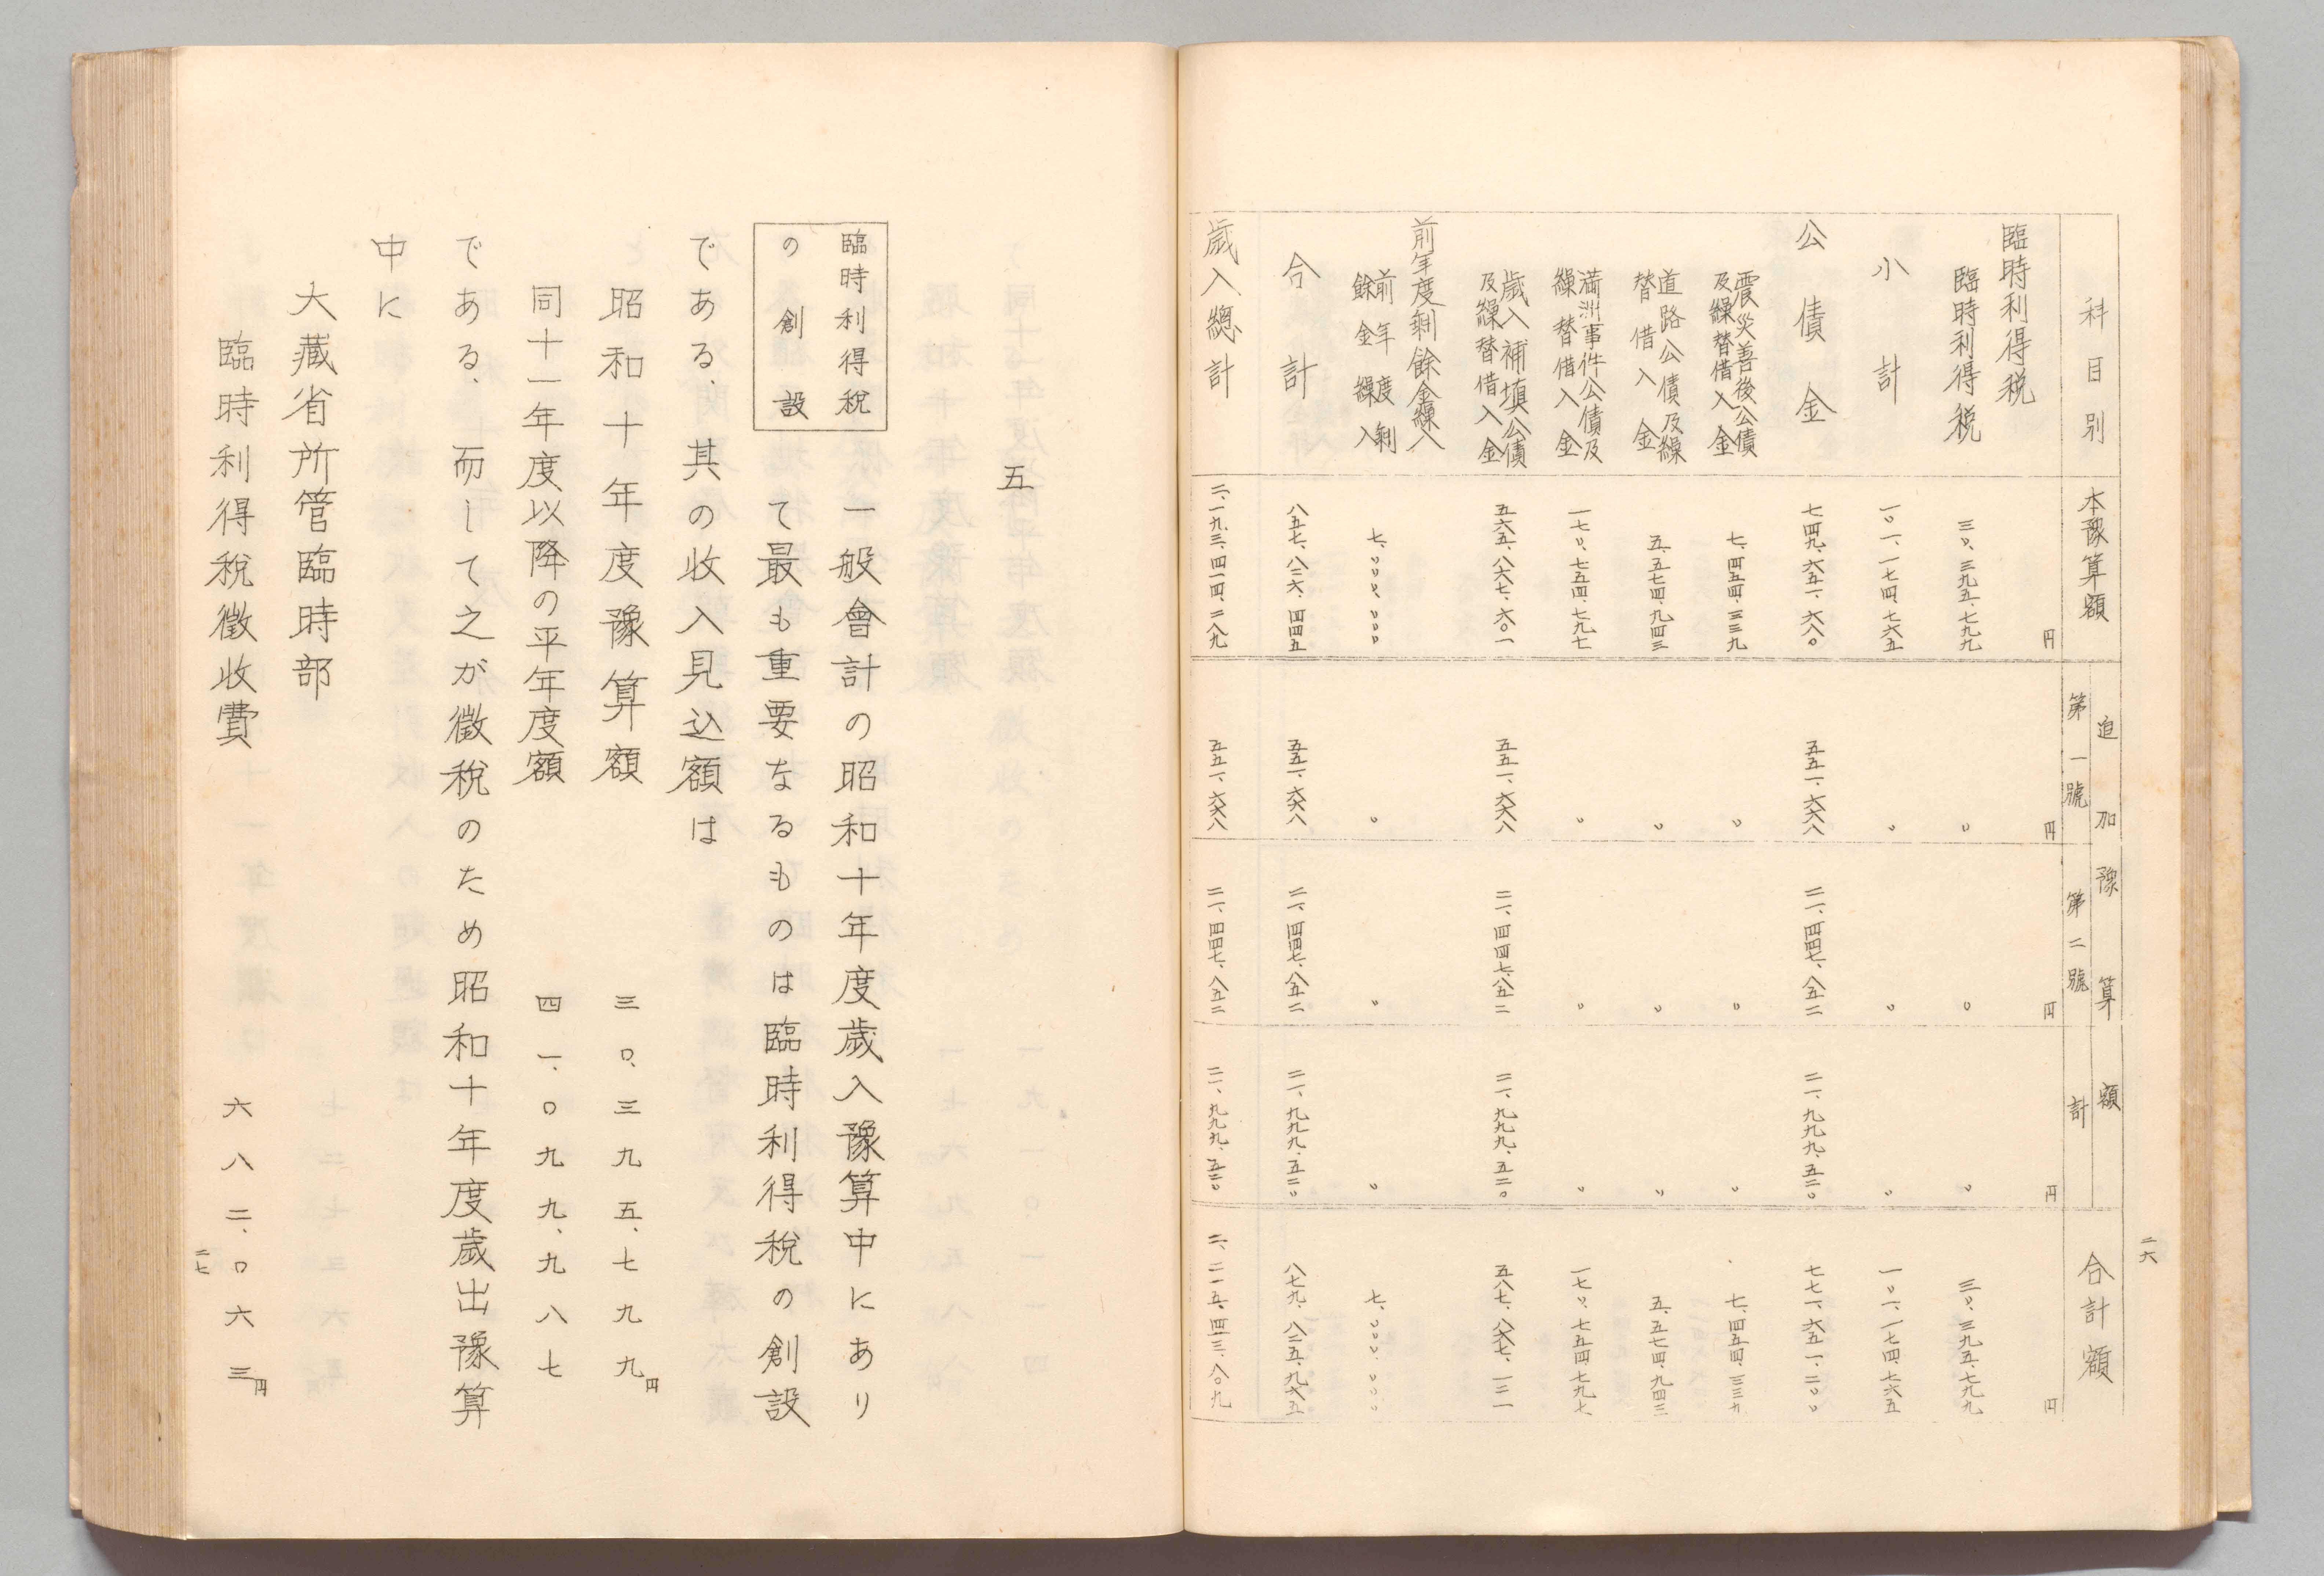 二六
科目別 本豫算額 追加豫算額 合計額
第一號 第二號 計
円 円 円 円 円
臨時利得税
臨時利得税 三〇、三九五、七九九 〇 〇 〇 三〇、三九五、七九九
小計 一〇一、一七四、七六五 〇 〇 〇 一〇一、一七四、七六五
公債金 七四九、六五一、六八〇 五五一、六六八 二一、四四七、八五二 二一、九九九、五二〇 七七一、六五一、二〇〇
震災善後公債
及繰替借入金 七、四五四、三三九 〇 〇 〇 七、四五四、三三九
道路公債及繰
替借入金 五、五七四、九四三 〇 〇 〇 五、五七四、九四三
満洲事件公債及
繰替借入金 一七〇、七五四、七九七 〇 〇 〇 一七〇、七五四、七九七
歳入補填公債
及繰替借入金 五六五、八六七、六〇一 五五一、六六八 二一、四四七、八五二 二一、九九九、五二〇 五八七、八六七、一二一
前年度剰餘金繰入
前年度剰
餘金繰入 七、〇〇〇、〇〇〇 〇 〇 〇 七、〇〇〇、〇〇〇
合計 八五七、八二六、四四五 五五一、六六八 二一、四四七、八五二 二一、九九九、五二〇 八七九、八二五、九六五
歳入總計 二、一九三、四一四、二八九 五五一、六六八 二一、四四七、八五二 二一、九九九、五二〇 二、二一五、四一三、八〇九
五
臨時利得税
の創設
一般會計の昭和十年度歳入豫算中にあり
て最も重要なるものは臨時利得税の創設
である、其の收入見込額は
昭和十年度豫算額 三〇、三九五、七九九円
同十一年度以降の平年度額 四一、〇九九、九八七
である、而して之が徴税のため昭和十年度歳出豫算
中に
大藏省所管臨時部
臨時利得税徴收費 六八二、〇六三円
二七